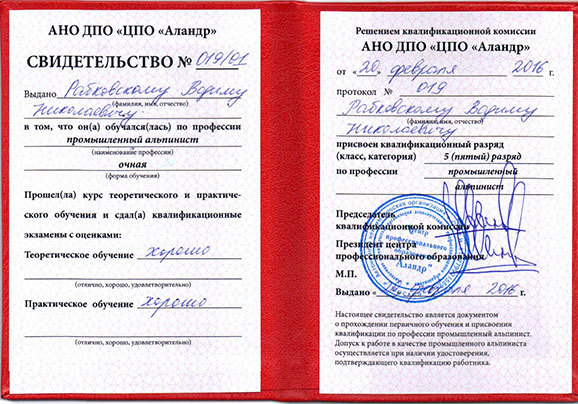 АНО ДПО «ЦПО «Аландр»
СВИДЕТЕЛЬСТВО № 019/01
Выдано Рабковскому Вадиму
(фамилия, имя, отчество)
Николаевичу
в том, что он(а) обучался(лась) по профессии
промышленный альпинист
(наименование профессии)
очная
(форма обучения)
Прошел(ла) курс теоретического и практиче-
ского обучения и сдал(а) квалификационные
экзамены с оценками:
Теоретическое обучение хорошо
(отлично, хорошо, удовлетворительно)
Практическое обучение хорошо
(отлично, хорошо, удовлетворительно)
Решением квалификационной комиссии
АНО ДПО «ЦПО «Аландр»
от «20» февраля 2016 г.
протокол № 019
Рабковскому Вадиму
(фамилия, имя, отчество)
Николаевичу
присвоен квалификационный разряд
(класс, категория) 5 (пятый) разряд
по профессии промышленный
альпинист
Председатель
квалификационной комиссии
Президент центра
профессионального образования
М.П.
Выдано « февраля 2016 г.
Центр
профессионального
образования
"Аландр"
Настоящее свидетельство является документом
о прохождении первичного обучения и присвоения
квалификации по профессии промышленный альпинист.
Допуск к работе в качестве промышленного альпиниста
осуществляется при наличии удостоверения,
подтверждающего квалификацию работника.